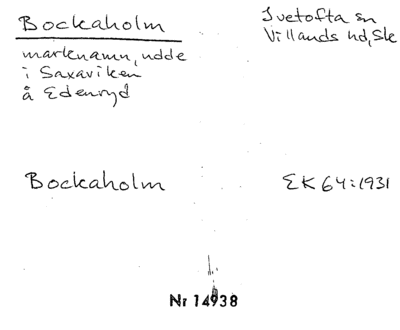 Bockaholm
Ivetofta sn
Villands hd, Sk
marknamn, udde
i Saxaviken
å Edenryd
Bockaholm
EK 64:1931
Nr 14938